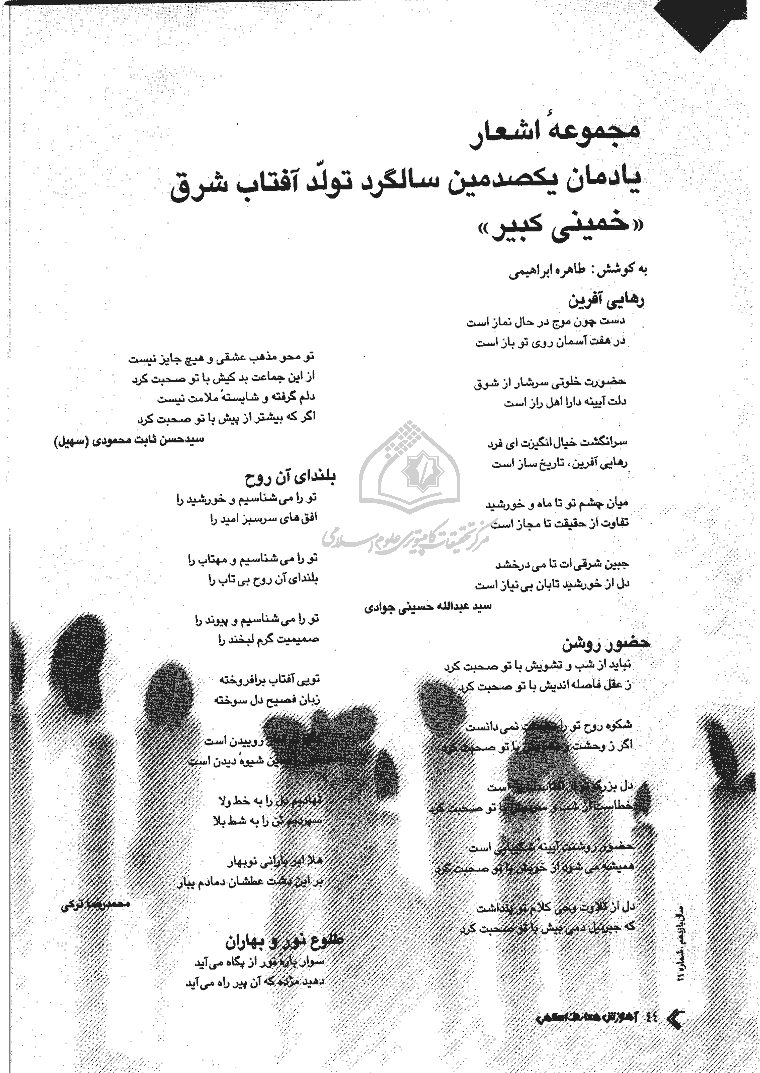 مجموعهٔ اشعار
یادمان یکصدمین سالگرد تولّد آفتاب شرق
«خمینی کبیر»
به کوشش: طاهره ابراهیمی
رهایی آفرین
دست چون موج در حال نماز است
در هفت آسمان روی تو باز است
حضورت خلوتی سرشار از شوق
دلت آیینه دارا اهل راز است
سرانگشت خیال انگیزت ای فرد
رهایی آفرین، تاریخ ساز است
میان چشم تو تا ماه و خورشید
تفاوت از حقیقت تا مجاز است
جبین شرقی ات تا می درخشد
دل از خورشید تابان بی نیاز است
سید عبدالله حسینی جوادی
حضور روشن
نباید از شب و تشویش با تو صحبت کرد
ز عقل فاصله اندیش با تو صحبت کرد
شکوه روح تو را نمی دانست
اگر ز وحشت و با تو صحبت کرد
دل بزرگ است
خطاست از شب و با تو صحبت کرد
حضور روشنت آیینه شکیبایی است
همیشه می شود از خویش با تو صحبت کرد
دل از تلاوت وحی کلام تو پنداشت
که جبرئیل دمی پیش با تو صحبت کرد
تو محو مذهب عشقی و هیچ جایز نیست
از این جماعت بد کیش با تو صحبت کرد
دلم گرفته و شایستهٔ ملامت نیست
اگر که بیشتر از پیش با تو صحبت کرد
سیدحسن ثابت محمودی (سهیل)
بلندای آن روح
تو را می شناسیم و خورشید را
افق های سرسبز امید را
تو را می شناسیم و مهتاب را
بلندای آن روح بی تاب را
تو را می شناسیم و پیوند را
صمیمیت گرم لبخند را
تویی آفتاب برافروخته
زبان فصیح دل سوخته
روییدن است
این شیوهٔ دیدن است
نهادیم دل را به خط ولا
سپردیم تن را به شط بلا
هلا ابر بارانی نوبهار
بر این دشت عطشان دمادم ببار
محمدرضا ترکی
طلوع نور و بهاران
سوار باره نور از پگاه می آید
دهید مژده که آن پیر راه می آید
سال یازدهم، شماره ۱۱
۴۴ آموزش معارف اسلامی
مرکز تحقیقات کامپیوتری علوم اسلامی